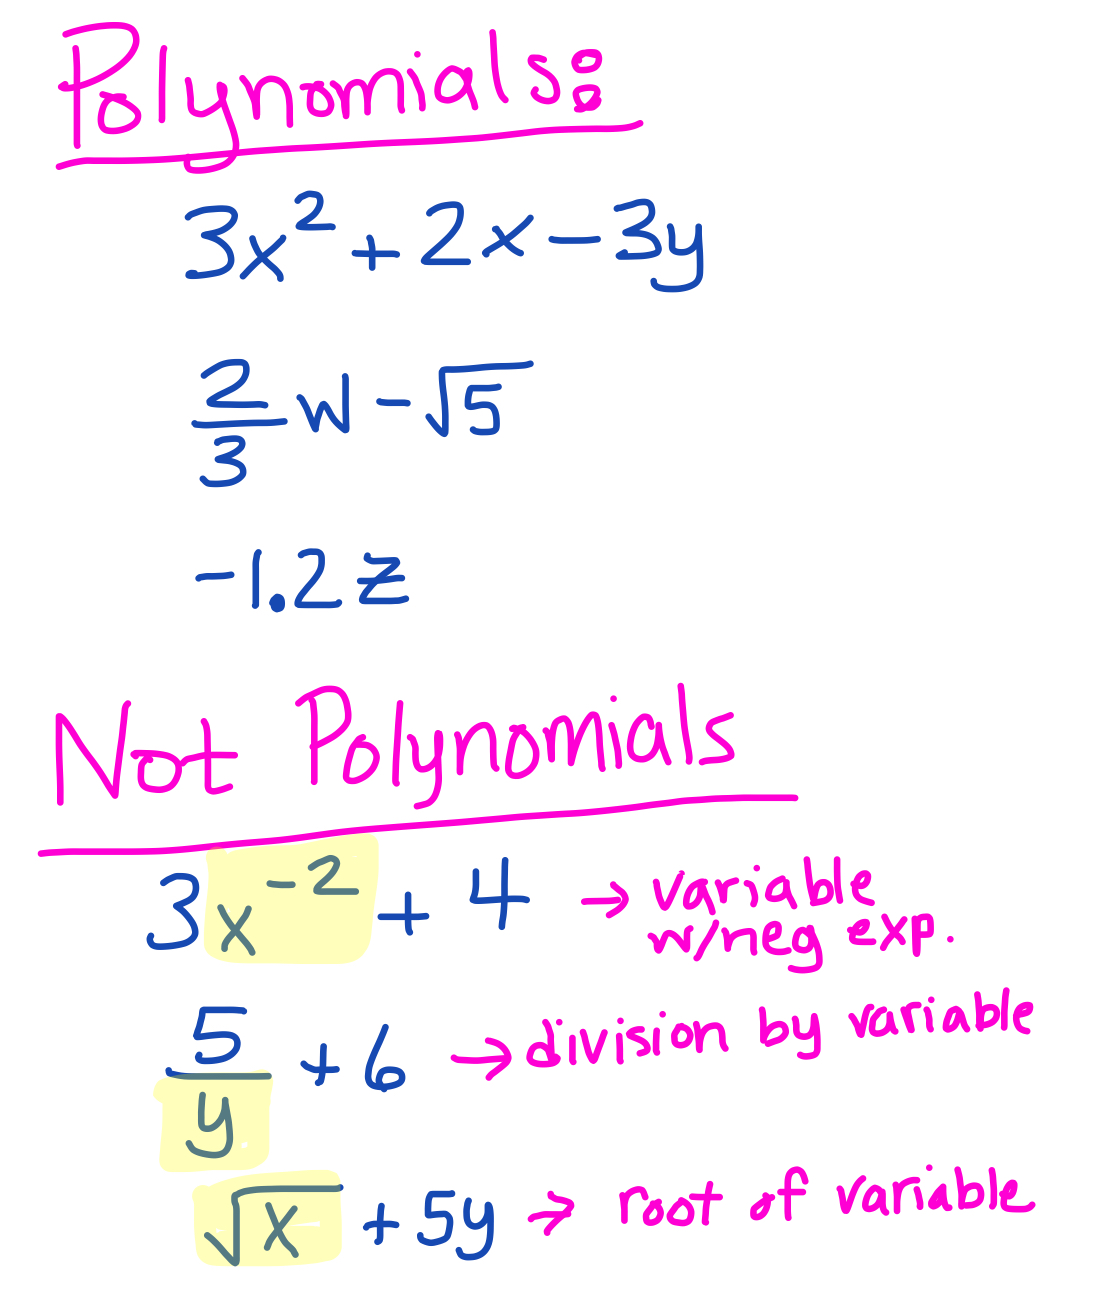 Polynomials:
3x² + 2x - 3y
2/3 w - √5
-1.2z
Not Polynomials
3x⁻² + 4 → variable
w/neg exp.
5/y + 6 → division by variable
√x + 5y → root of variable